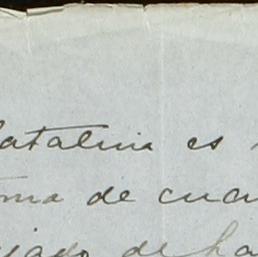 atalina es
ma de cua
jado de ha